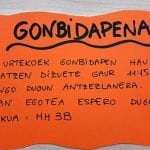 GONBIDAPENA
URTEKOEK GONBIDAPEN HAU
ATZEN DIZUETE GAUR 11:45
NGO DUGUN ANTZERLANERA.
AN EGOTEA ESPERO DUGU
KUA: HH 3B